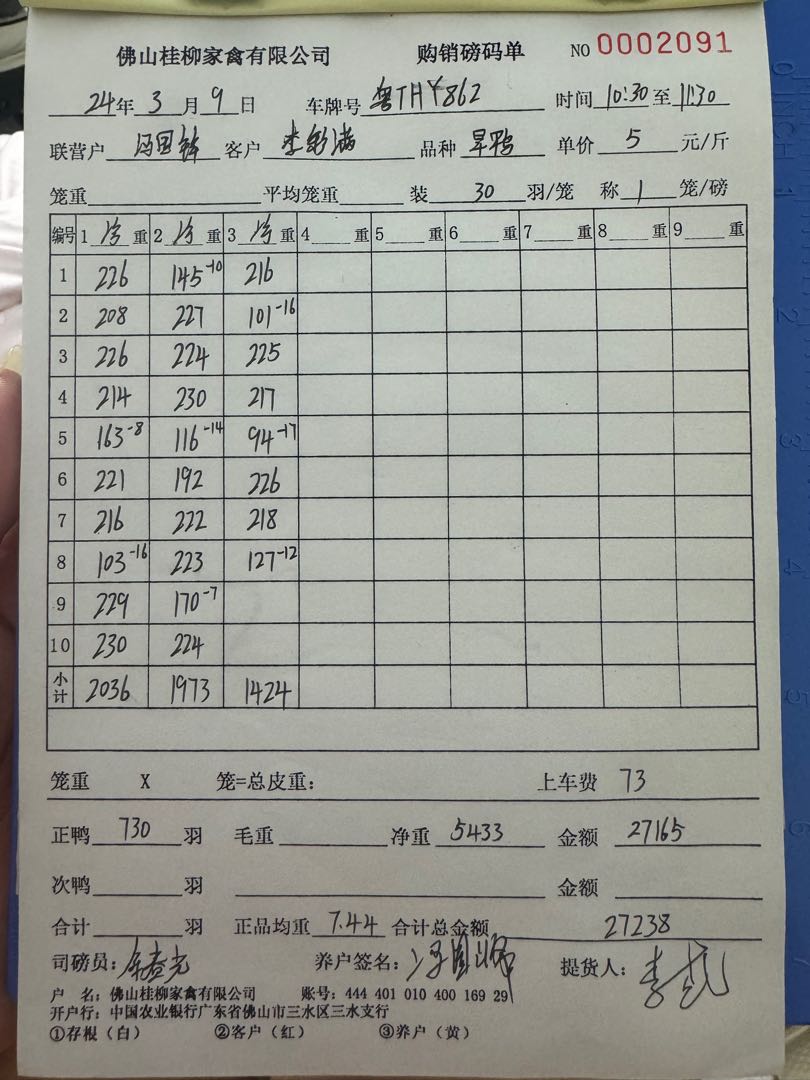 佛山桂柳家禽有限公司 购销磅码单 NO 0002091
24年 3 月 9 日 车牌号 粤THY862 时间 10:30 至 11:30
联营户 冯国 客户 李彩满 品种 旱鸭 单价 5 元/斤
笼重 平均笼重 装 30 羽/笼 称 1 笼/磅
编号 1 净 重 2 净 重 3 净 重 4 重 5 重 6 重 7 重 8 重 9 重
1 226 145-10 216
2 208 227 101-16
3 226 224 225
4 214 230 217
5 163-8 116-14 94-17
6 221 192 226
7 216 222 218
8 103-16 223 127-12
9 229 170-7
10 230 224
小计 2036 1973 1424
笼重 X 笼=总皮重： 上车费 73
正鸭 730 羽 毛重 净重 5433 金额 27165
次鸭 羽 金额
合计 羽 正品均重 7.44 合计总金额 27238
司磅员： 养户签名： 提货人：
户 名：佛山桂柳家禽有限公司 账号：444 401 010 400 169 29
开户行：中国农业银行广东省佛山市三水区三水支行
①存根（白） ②客户（红） ③养户（黄）